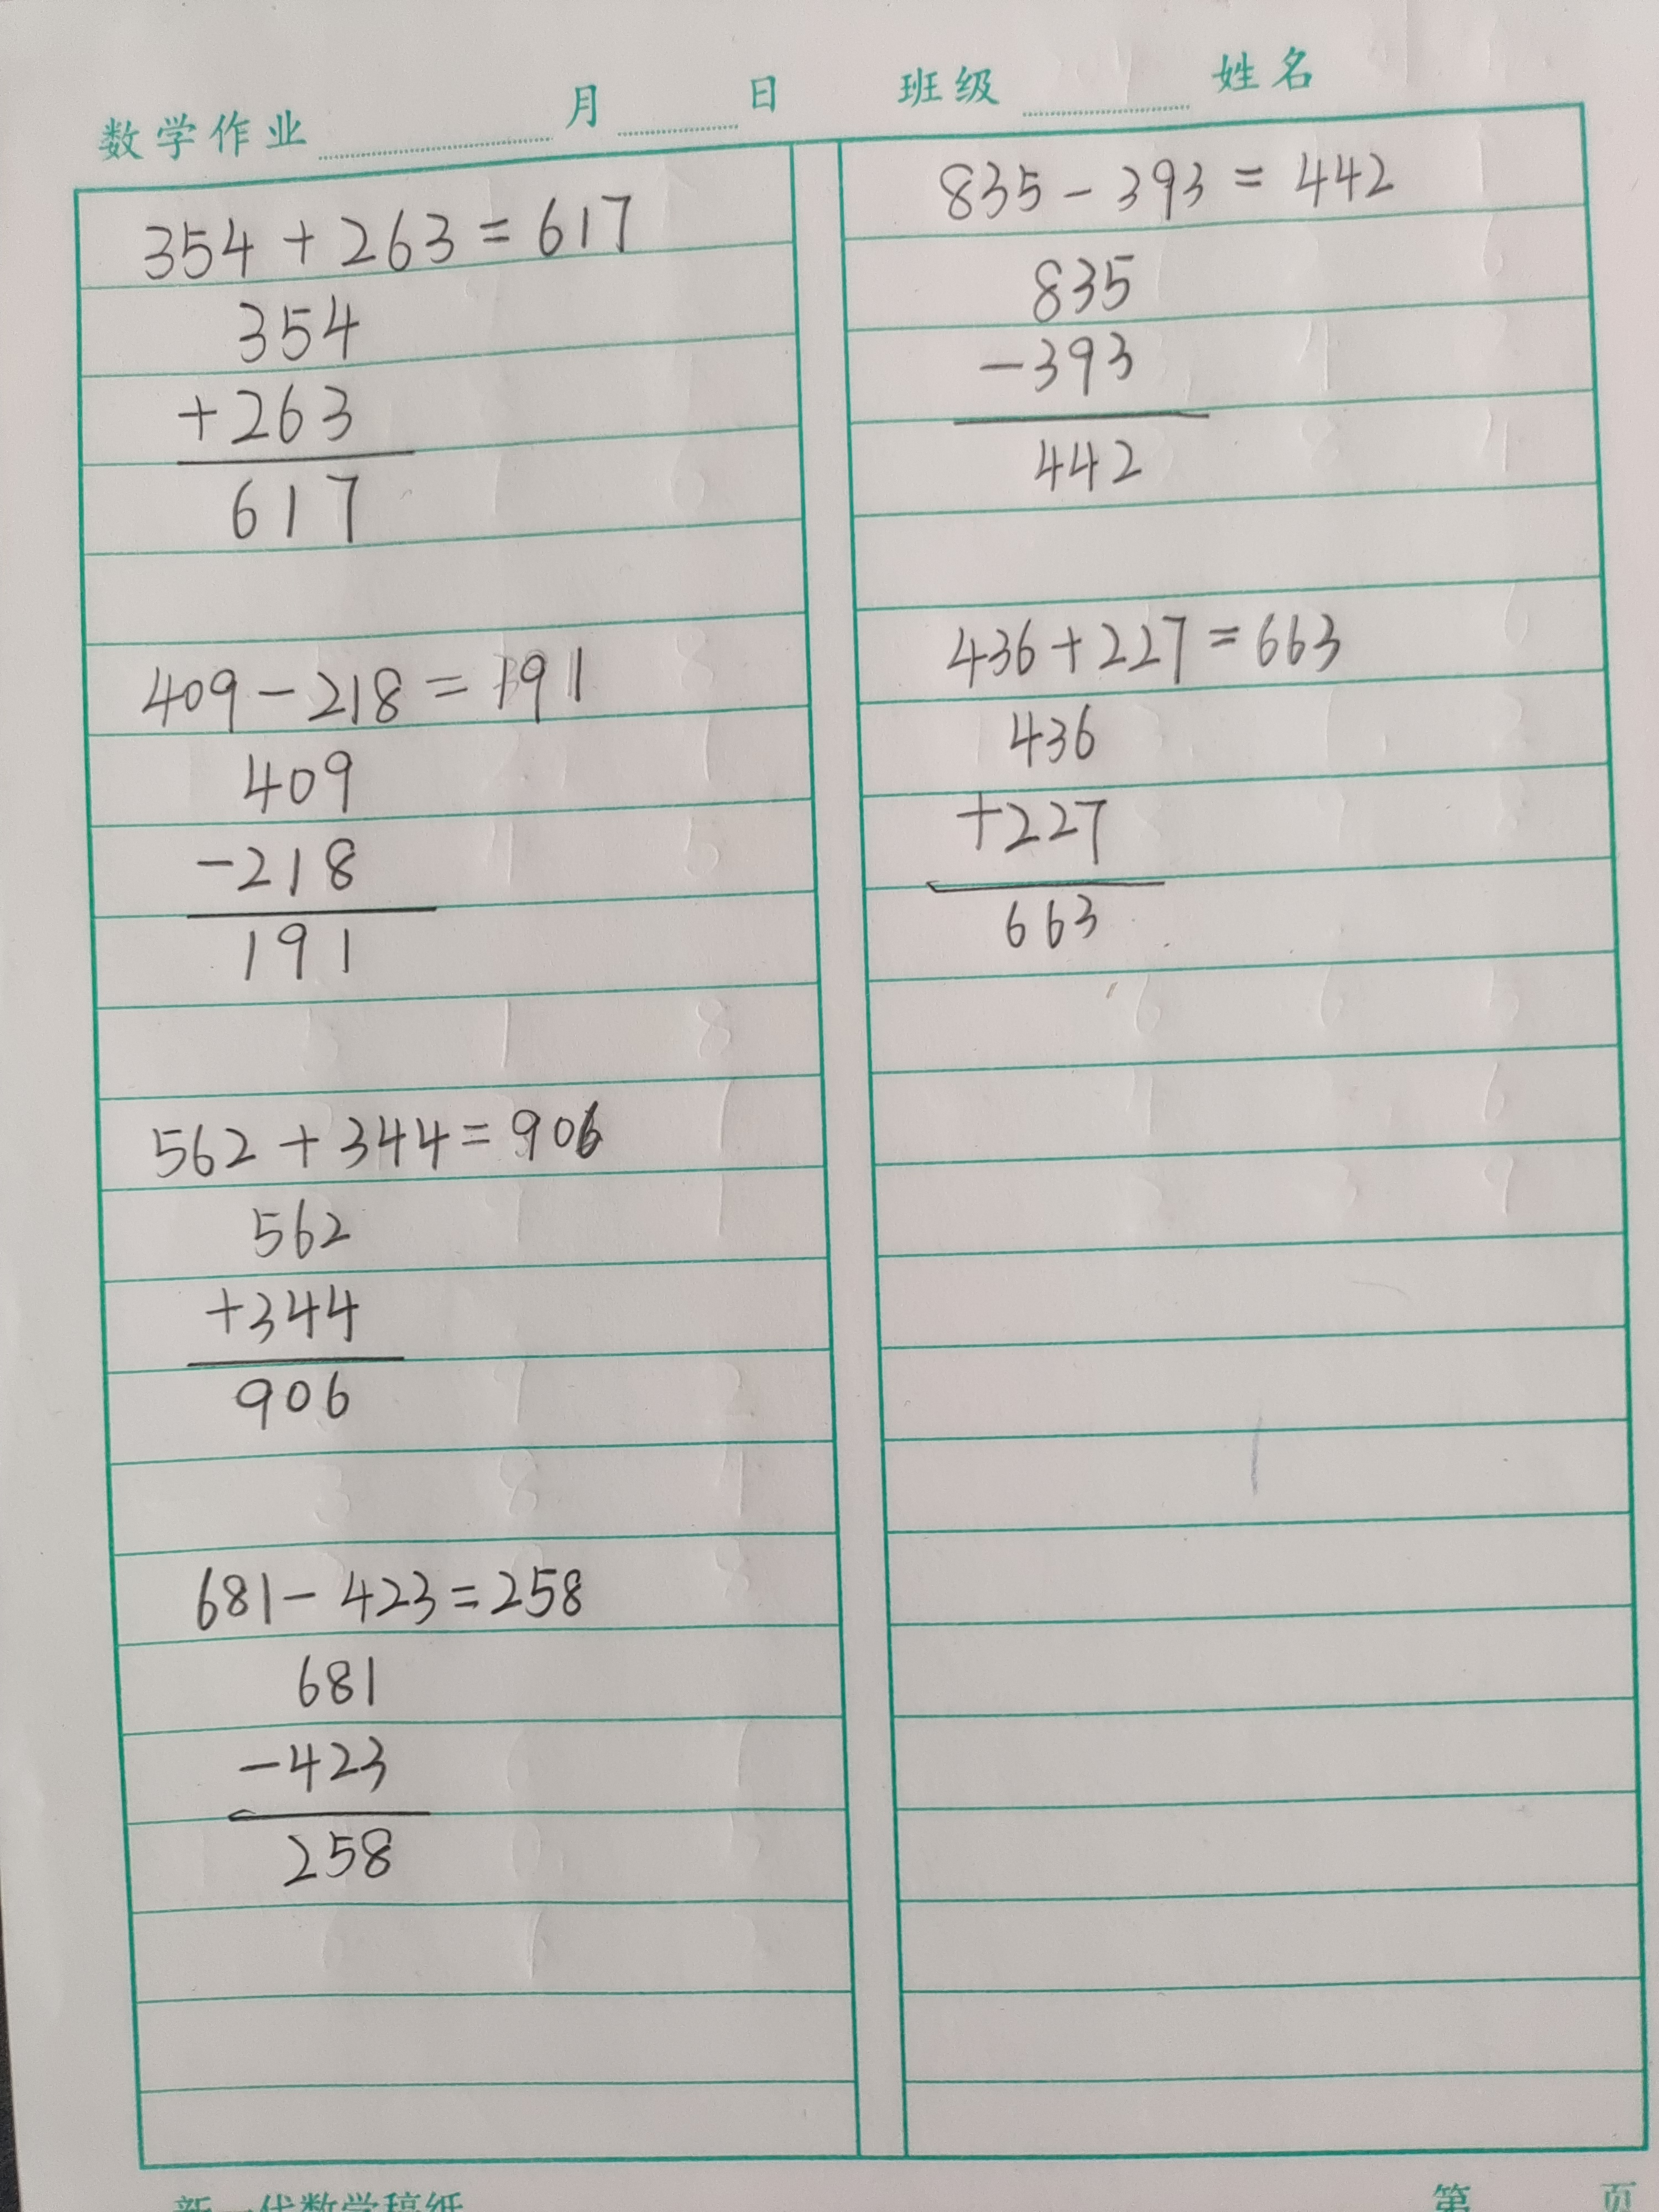 数学作业 月 日 班级 姓名
354 + 263 = 617
354
+263
617
409 - 218 = 191
409
-218
191
562 + 344 = 906
562
+344
906
681 - 423 = 258
681
-423
258
835 - 393 = 442
835
-393
442
436 + 227 = 663
436
+227
663
新一代数学稿纸 第 页